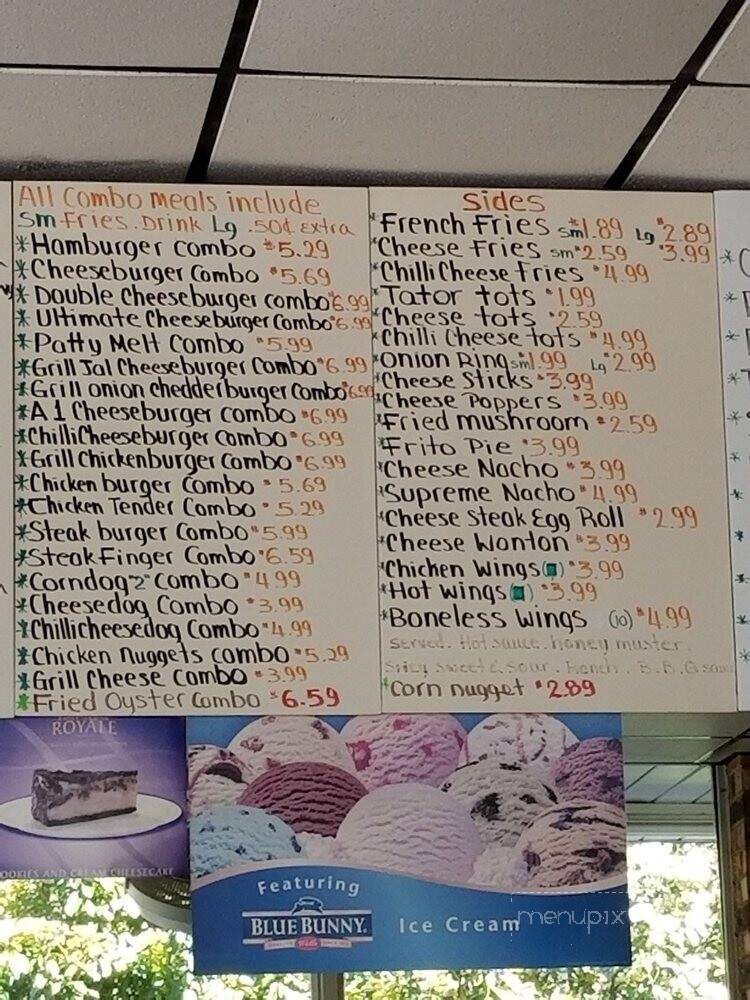 All Combo meals include
Sm Fries. Drink Lg .50¢ Extra
*Hamburger Combo $5.29
*Cheeseburger Combo $5.69
* Double Cheeseburger combo $6.99
* Ultimate Cheeseburger Combo $6.99
*Patty Melt Combo $5.99
*Grill Jal Cheeseburger Combo $6.99
*Grill onion chedderburger Combo $6.99
*A1 Cheeseburger combo $6.99
*Chilli Cheeseburger Combo $6.99
*Grill Chickenburger Combo $6.99
*Chicken burger Combo $5.69
*Chicken Tender Combo $5.29
*Steak burger Combo $5.99
*Steak Finger Combo $6.59
*Corndog "2" combo $4.99
*Cheesedog Combo $3.99
*Chillicheesedog Combo $4.99
*Chicken Nuggets combo $5.29
*Grill Cheese Combo $3.99
*Fried Oyster Combo $6.59
Sides
*French Fries Sm $1.89 Lg $2.89
*Cheese Fries sm $2.59 $3.99
*Chilli Cheese Fries $4.99
*Tator tots $1.99
*Cheese tots $2.59
*Chilli Cheese tots $4.99
*Onion Ring sm $1.99 Lg $2.99
*Cheese Sticks $3.99
*Cheese Poppers $3.99
*Fried mushroom $2.59
*Frito Pie $3.99
*Cheese Nacho $3.99
*Supreme Nacho $4.99
*Cheese Steak Egg Roll $2.99
*Cheese Wonton $3.99
*Chicken Wings ( ) $3.99
*Hot wings ( ) $3.99
*Boneless wings (10) $4.99
Served. Hot sauce. honey muster.
Spicy Sweet & Sour. Ranch. B.B.Q sauce
*Corn nugget $2.89
ROYALE
COOKIES AND CREAM CHEESECAKE
Featuring
BLUE BUNNY.
Ice Cream
menupix